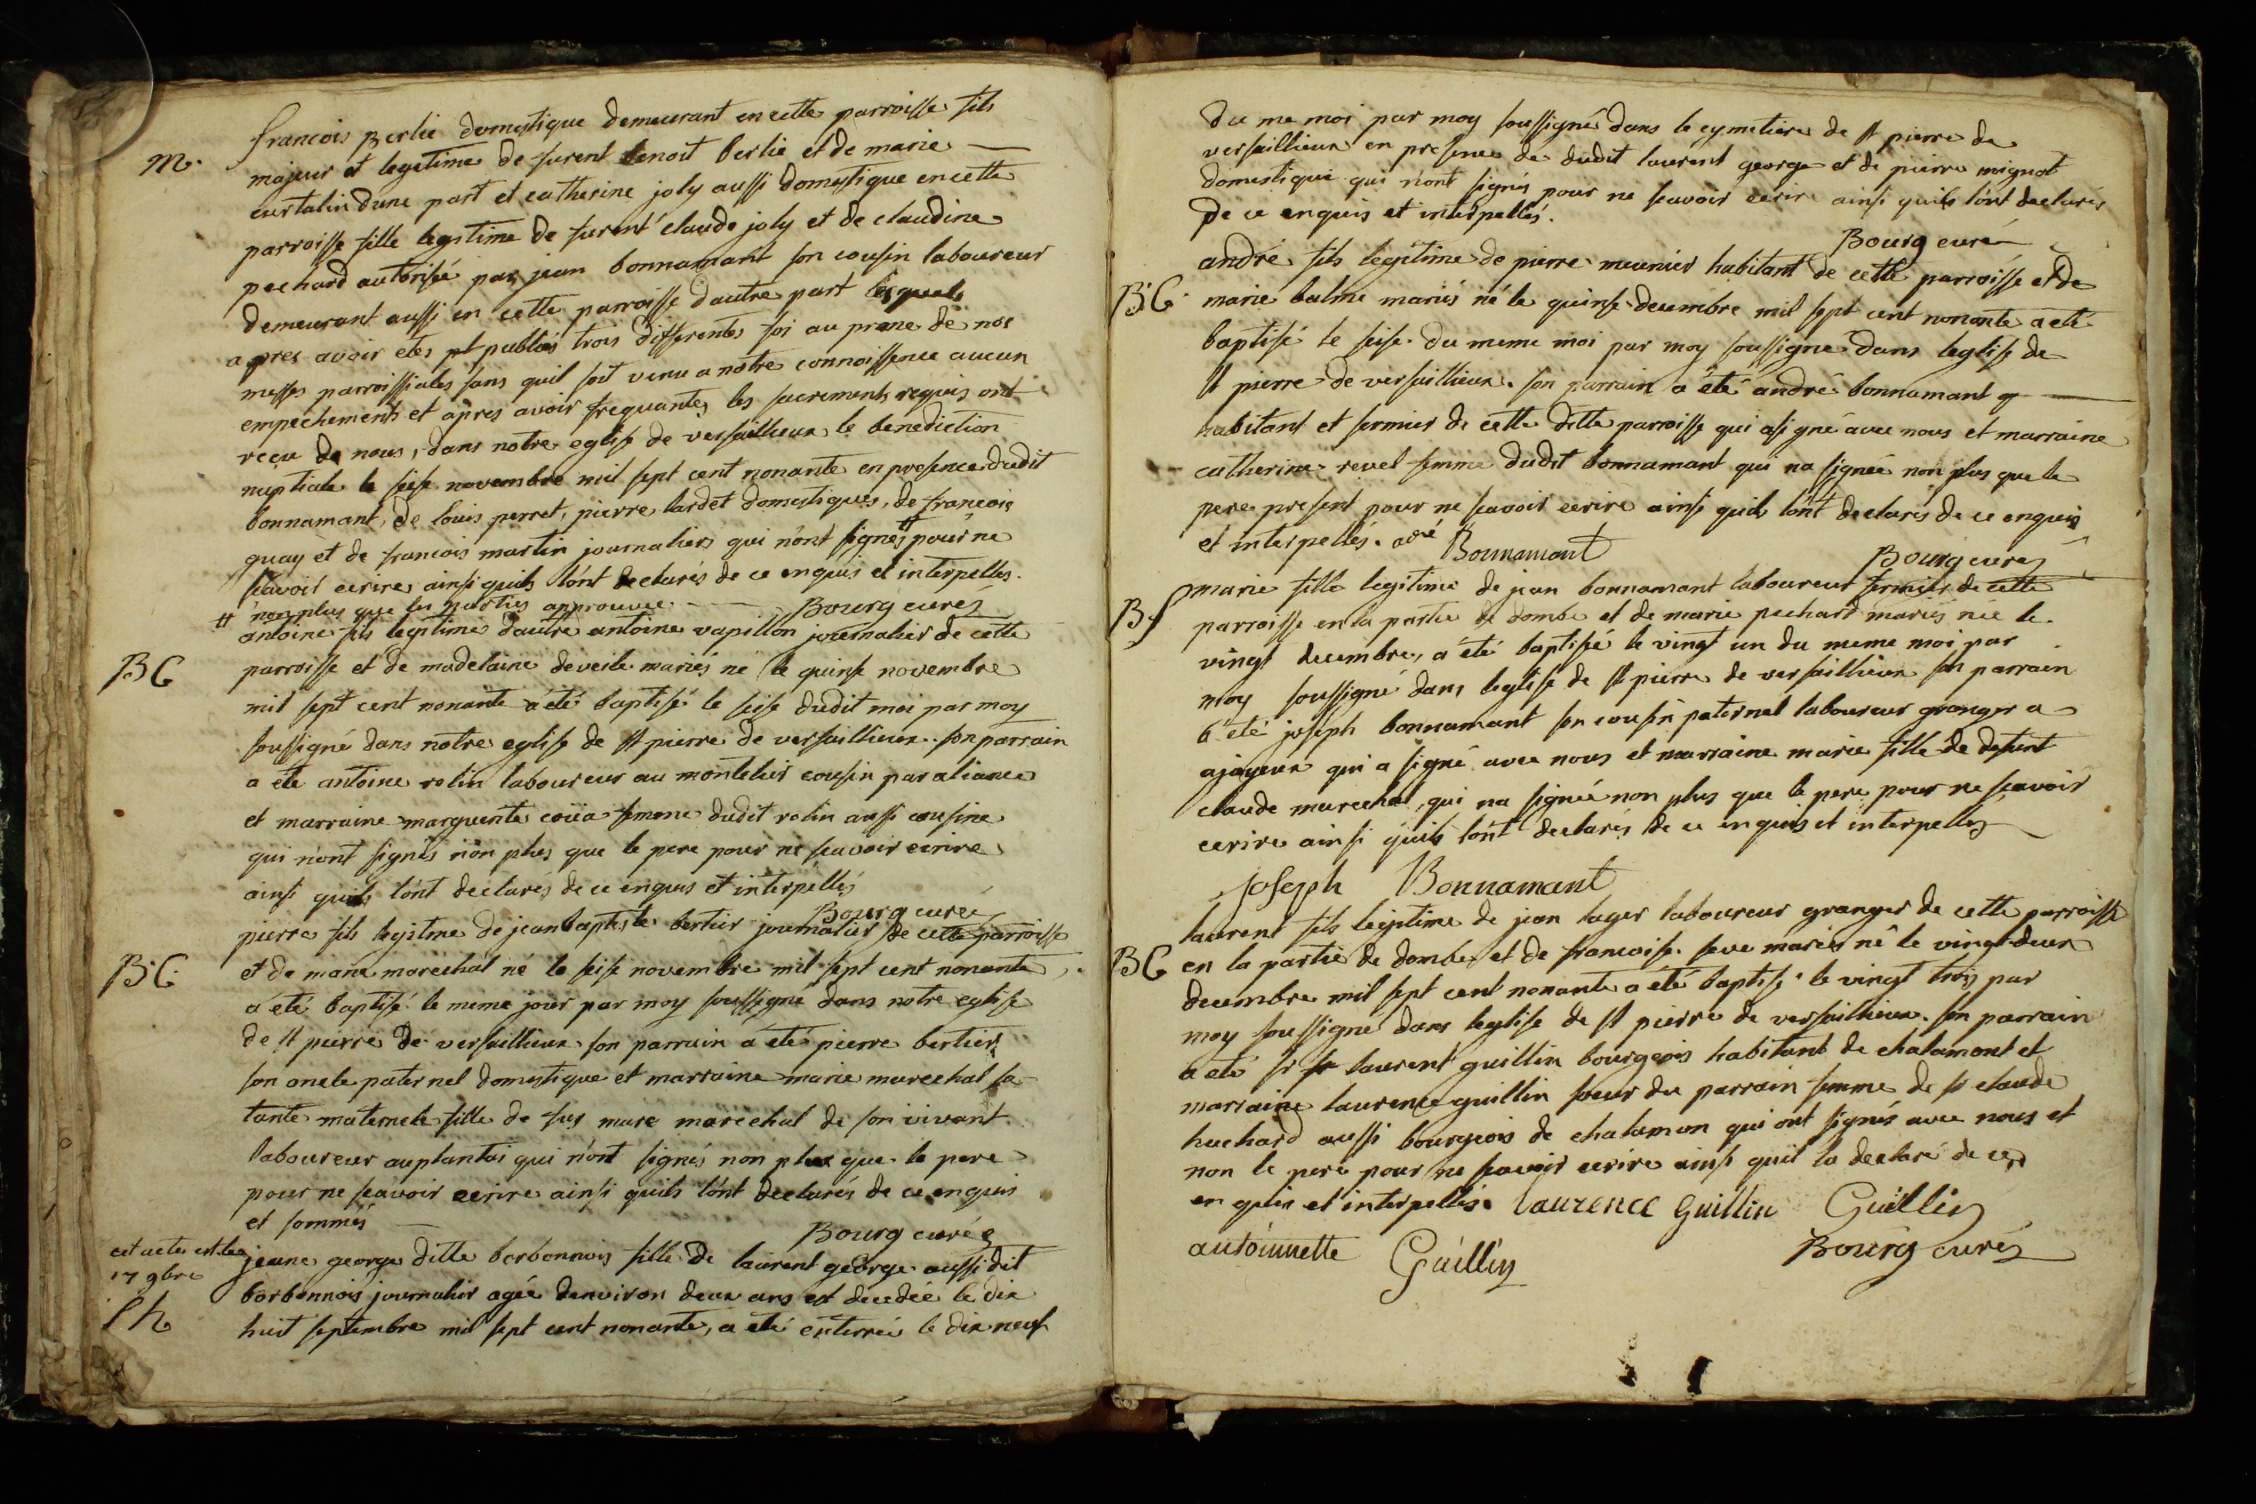 francois Berlie domestique demeurant en cette parroisse fils
m. majeur et legetime de furent benoit berlie et de marie
curtalin dune part et catherine joly aussi domestique en cette
parroisse fille legitime de furent claude joly et de claudine
pechard autorisée par jean bonnamant son cousin laboureur
demeurant aussi en cette parroisse dautre part lesquels
apres avoir etes pt publiés trois differentes foi au prone de nos
messes parroissiales sans quil soit venu a notre connoissence aucun
empechements et apres avoir frequantes les sacrements requis ont
reçu de nous, dans notre eglise de versaillieux le benediction
nuptiale le seise novembre mil sept cent nonante en presence dudit
bonnamant, de louis perret, pierre lardet domestiques, de francois
quay et de francois martin journaliers qui nont signés # pour ne
scavoir ecrire ainsi quils lont declarés de ce enquis et interpelles.
# non plus que les parties approuvee Bourg curéz
antoine fils legitime dautre antoine vapillon journalier de cette
BG parroisse et de madelaine deveile mariés né le quinse novembre
mil sept cent nonante a été baptisé le seise dudit moi par moy
soussigné dans notre eglise de st pierre de versaillieux. son parrain
a ete antoine rolin laboureur au montelier cousin par aliance
et marraine marguerite coüa femme dudit rolin aussi cousine
qui nont signés non plus que le pere pour ne scavoir ecrire
ainsi quils lont declares de ce enquis et interpellés
Bourg curéé
pierre fils legitme de jean baptiste bertier journalier de cette parroisse
B.G. et de marie marechal né le seise novembre mil sept cent nonante
a été baptisé le meme jour par moy soussigné dans notre eglise
de st pierre de versaillieux son parrain a été pierre bertier
son oncle paternel domestique et marraine marie marechal sa
tante maternele fille de fus marc marechal de son vivant
laboureur auplantai qui nont signés non plus que le pere
pour ne scavoir ecrire ainsi quils lont declarés de ce enquis
et sommés
Bourg curéé
cet acte est
17 9bre
jeane george ditte borbonnois fille de laurent george aussi dit
borbonnois journalier agée denviron deux ans est decedée le dix
Sh huit septembre mil sept cent nonante, a été enterrée le dix neuf
du me moi par moy soussigné dans le cymetiere de st pierre de
versaillieux en presence de dudit laurent george et de pierre mignot
domestique qui n'ont signés pour ne scavoir ecrire ainsi quils lont declarés
de ce enquis et interpellés.
Bourg curé
andré fils legitime de pierre meunier habitant de cette parroisse et de
B.G. marie balme mariés né le quinse decembre mil sept cent nonante a été
baptisé le seise du meme moi par moy soussigné dans leglise de
st pierre de versaillieux. son parrain a été andré bonnamant
habitant et fermier de cette ditte parroisse qui a signé avec nous et marraine
catherine revel femme dudit bonnamant qui na signée non plus que le
pere present pour ne scavoir ecrire ainsi quils lont declarés de ce enquis
et interpellés. adré Bonnamant
Bourg curéz
marie fille legitime de jean bonnamant laboureur fermier de cette
Bf parroisse en la partie de dombe et de marie pechard mariés née le
vingt decembre, a été baptisée le vingt un du meme moi par
moy soussigné dans leglise de st pierre de versaillieux son parrain
a été joseph bonnamant son cousin paternel laboureur granger a
ajoyeux qui a signé avec nous et marraine marie fille de defunt
claude marechal, qui na signée non plus que le pere pour ne scavoir
ecrire ainsi quils lont declarés de ce enquis et interpelles
Joseph Bonnamant
laurent fils legitime de jean lager laboureur granger de cette parroisse
BG en la partie de dombe et de francoise seve mariés né le vingt deux
decembre mil sept cent nonante a été baptisé le vingt trois par
moy soussigné dans leglise de st pierre de versaillieux. son parrain
a été sr laurent guillin bourgeois habitant de chalamont et
marraine laurence guillin soeur du parrain femme de sr claude
huchard aussi bourgeois de chalamon qui ont signés avec nous et
non le pere pour ne scavoir ecrire ainsi quil la declaré de ce
enquis et interpellés. laurence Guillin Guillin
antoinnette Guillin Bourg curéz